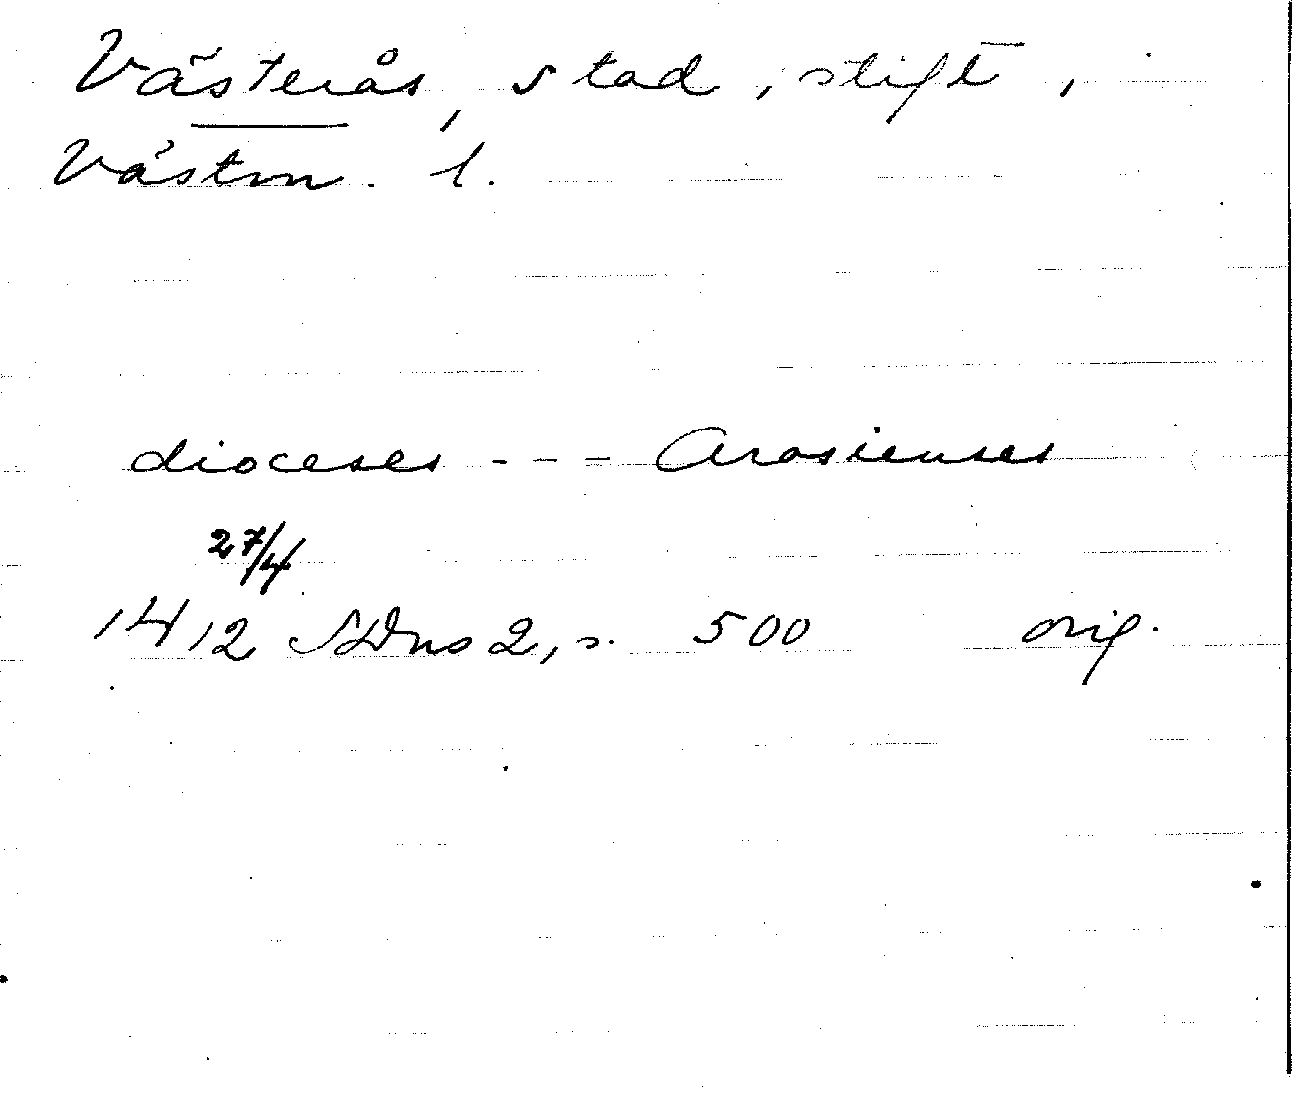 Västerås, stad, stift,
Västm. l.
dioceses - - - Arosienses
27/4
1412 SDns 2, s. 500 orig.